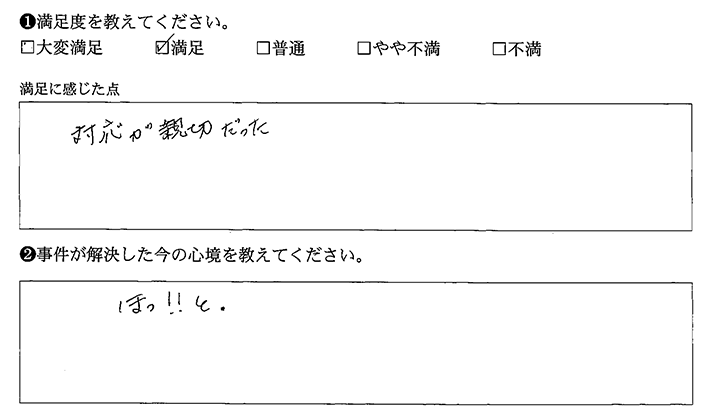 ❶満足度を教えてください。
□大変満足 ☑満足 □普通 □やや不満 □不満
満足に感じた点
対応が親切だった
❷事件が解決した今の心境を教えてください。
ほっ!!と.